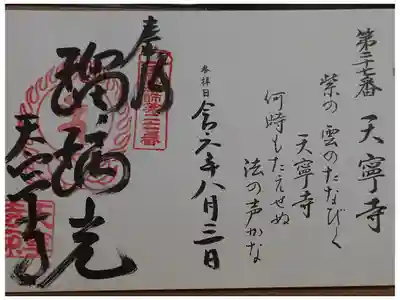 第二十七番 天寧寺
紫の雲のたなびく
天寧寺
何時もたえせぬ
法の声かな
参拝日
令和六年八月三日
奉拝
瑠璃光
天寧寺